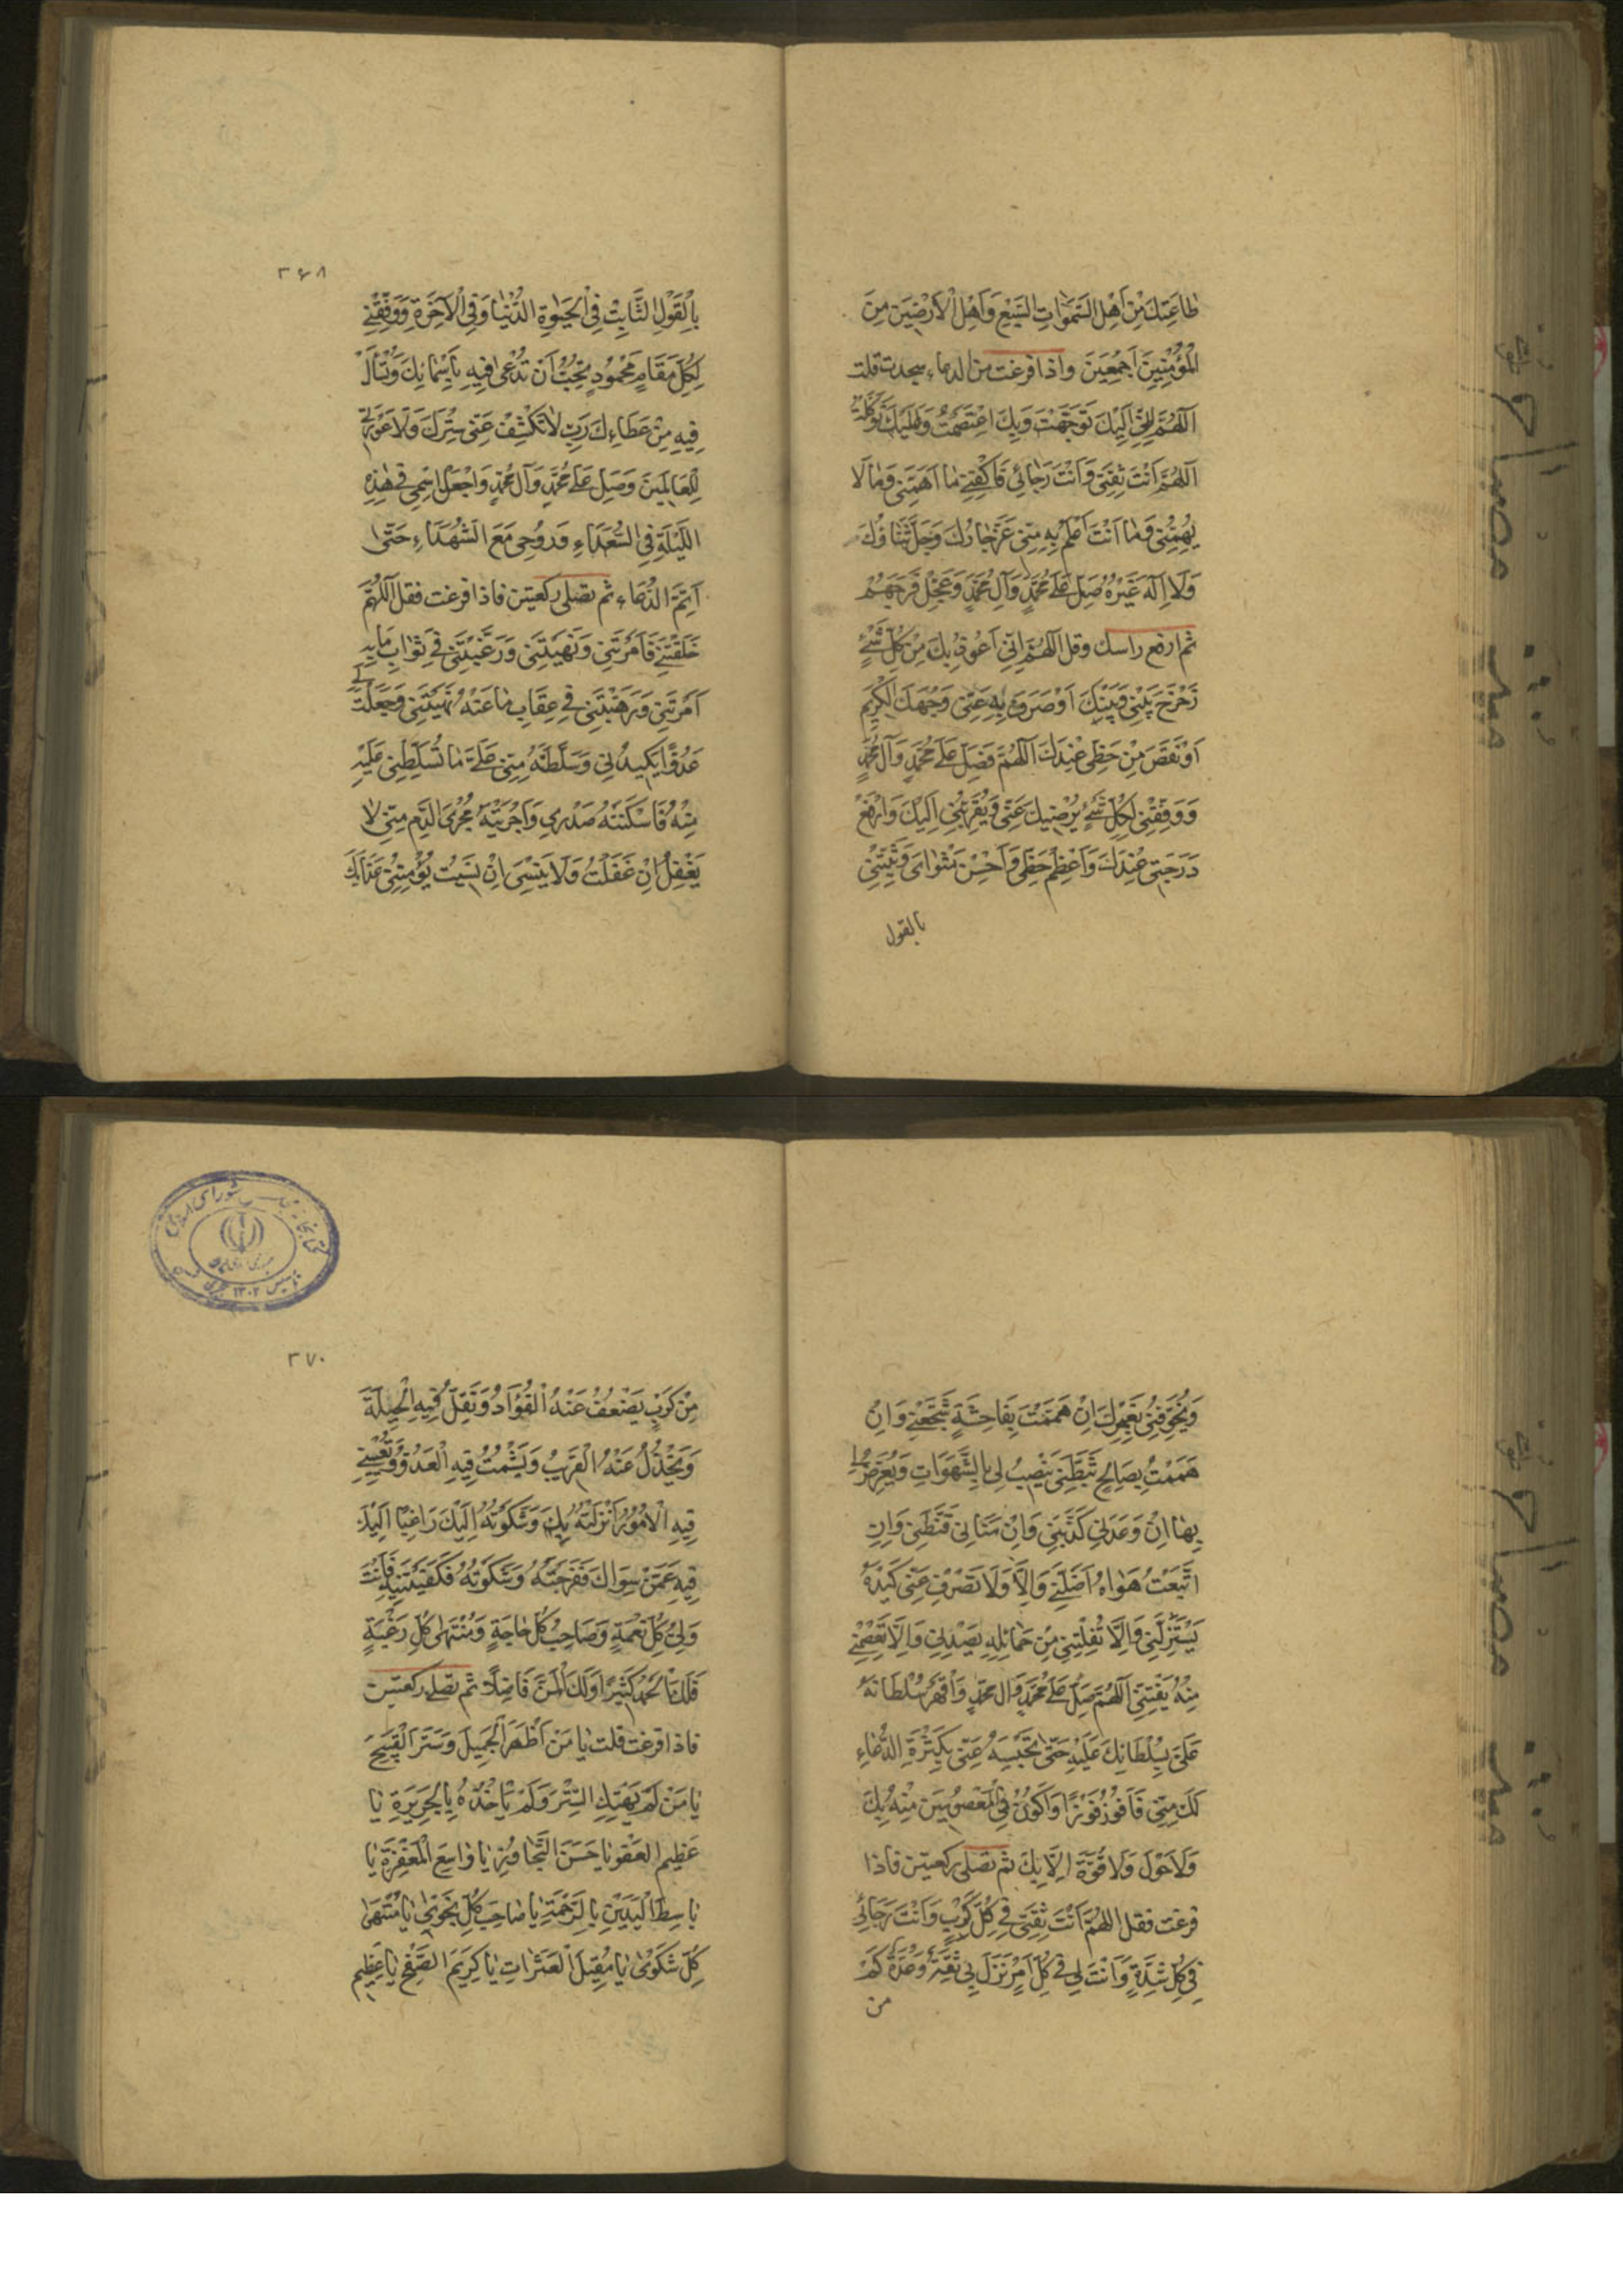 طاعَتِكَ مِنْ اَهْلِ السَّمٰوَاتِ السَّبْعِ وَاَهْلِ الْاَرَضِيَن مِنَ
الْمُؤْمِنِينَ اَجْمَعِينَ واذا فرغت من الدعاء سجدت قلت
اَللّٰهُمَّ اِنّٖي اِلَيْكَ تَوَجَّهْتُ وَبِكَ اعْتَصَمْتُ وَعَلَيْكَ تَوَكَّلْتُ
اَللّٰهُمَّ اَنْتَ ثِقَتٖي وَاَنْتَ رَجٰائٖي فَاكْفِنٖي مٰا اَهَمَّنٖي وَمٰا لَا
يُهِمُّنٖي وَمٰا اَنْتَ اَعْلَمُ بِهِ مِنّٖي عَزَّ جٰارُكَ وَجَلَّ ثَنٰاؤُكَ
وَلَا اِلٰهَ غَيْرُكَ صَلِّ عَلٰى مُحَمَّدٍ وَآلِ مُحَمَّدٍ وَعَجِّلْ فَرَجَهُمْ
ثم ارفع راسك وقل اَللّٰهُمَّ اِنّٖي اَعُوذُ بِكَ مِنْ كُلِّ شَيْءٍ
زَحْزَحَ بَيْنٖي وَبَيْنَكَ اَوْ صَرَفَ بِهِ عَنّٖي وَجْهَكَ الْكَرٖيمَ
اَوْ نَقَصَ مِنْ حَظّٖي عِنْدَكَ اَللّٰهُمَّ فَصَلِّ عَلٰى مُحَمَّدٍ وَآلِ مُحَمَّدٍ
وَوَفِّقْنٖي لِكُلِّ شَيْءٍ يُرْضٖيكَ عَنّٖي وَيُقَرِّبُنٖي اِلَيْكَ وَارْفَعْ
دَرَجَتٖي عِنْدَكَ وَاَعْظِمْ حَظّٖي وَاَحْسِنْ مَثْوٰايَ وَثَبِّتْنٖي
بالقول
۳۶۸
بِالْقَوْلِ الثَّابِتِ فِي الْحَيٰوةِ الدُّنْيٰا وَفِي الْاٰخِرَةِ وَوَفِّقْنٖي
لِكُلِّ مَقَامٍ مَحْمُودٍ تُحِبُّ اَنْ تُدْعٰى فٖيهِ بِاَسْمٰائِكَ وَتُسْأَلَ
فٖيهِ مِنْ عَطَاءِكَ رَبِّ لٰا تَكْشِفْ عَنّٖي سِتْرَكَ وَلَا عَوْرَتٖي
لِلْعَالَمٖينَ وَصَلِّ عَلٰى مُحَمَّدٍ وَآلِ مُحَمَّدٍ وَاجْعَلِ اسْمٖي فٖي هٰذِهِ
اللَّيْلَةِ فِي السُّعَدٰاءِ وَرُوحٖي مَعَ الشُّهَدٰاءِ حَتّٰى
اَتِمَّ الدُّعٰاءِ ثم تصلى ركعتين فاذا فرغت فقل اَللّٰهُمَّ
خَلَقْتَنٖي فَاَمَرْتَنٖي وَنَهَيْتَنٖي وَرَغَّبْتَنٖي فٖي ثَوٰابِ مٰا بِهِ
اَمَرْتَنٖي وَرَهَّبْتَنٖي فٖي عِقٰابِ مٰا عَنْهُ نَهَيْتَنٖي وَجَعَلْتَ لٖي
عَدُوًّا يَكٖيدُنٖي وَسَلَّطْتَهُ مِنّٖي عَلٰى مٰا تُسَلِّطْنٖي عَلَيْهِ
مِنْهُ فَاَسْكَنْتَهُ صَدْرٖي وَاَجْرَيْتَهُ مَجْرَى الدَّمِ مِنّٖي لٰا
يَغْفُلُ اِنْ غَفَلْتُ وَلَا يَنْسٰى اِنْ نَسٖيتُ يُؤْمِنُنٖي عَذٰابَكَ
وَيُخَوِّفُنٖي بِغَيْرِكَ اِنْ هَمَمْتُ بِفَاحِشَةٍ شَجَّعَنٖي وَاِنْ
هَمَمْتُ بِصَالِحٍ ثَبَّطَنٖي يَنْصِبُ لٖي بِالشَّهَوَاتِ وَيُعَرِّضُ لٖي
بِهٰا اِنْ وَعَدَنٖي كَذَّبَنٖي وَاِنْ مَنّٰانٖي قَنَّطَنٖي وَاِنِ
اتَّبَعْتُ هَوٰاهُ اَضَلَّنٖي وَاِلَّا وَلَا تَصْرِفْ عَنّٖي كَيْدَهُ
يَسْتَزِلَّنٖي وَاِلَّا تُفْلِتْنٖي مِنْ حَبٰائِلِهِ يَصُدَّنٖي وَاِلَّا تَعْصِمْنٖي
مِنْهُ يَفْتِنّٖي اَللّٰهُمَّ صَلِّ عَلٰى مُحَمَّدٍ وَآلِ مُحَمَّدٍ وَاقْهَرْ سُلْطَانَهُ
عَلَيَّ بِسُلْطَانِكَ عَلَيْهِ حَتّٰى تَحْبِسَهُ عَنّٖي بِكَثْرَةِ الدُّعٰاءِ
لَكَ مِنّٖي فَاَفُوزَ فَوْزًا وَاَكُونَ فِي الْمَعْصُومٖينَ مِنْهُ بِكَ
وَلَا حَوْلَ وَلَا قُوَّةَ اِلَّا بِكَ ثم تصلى ركعتين فاذا
فرغت فقل اللّٰهُمَّ اَنْتَ ثِقَتٖي فٖي كُلِّ كَرْبٍ وَاَنْتَ رَجَائٖي
فٖي كُلِّ شِدَّةٍ وَاَنْتَ لٖي فٖي كُلِّ اَمْرٍ نَزَلَ بٖي ثِقَةٌ وَعُدَّةٌ كَمْ
من
۳۷۰
مِنْ كَرْبٍ يَضْعُفُ عَنْهُ الْفُؤَادُ وَتَقِلُّ فٖيهِ الْحٖيلَةُ
وَيَخْذُلُ عَنْهُ الْقَرٖيبُ وَيَشْمَتُ فٖيهِ الْعَدُوُّ وَتُعْيٖينٖي
فٖيهِ الْاُمُورُ اَنْزَلْتُهُ بِكَ وَشَكَوْتُهُ اِلَيْكَ رَاغِبًا اِلَيْكَ
فٖيهِ عَمَّنْ سِوَاكَ فَفَرَّجْتَهُ وَشَكَوْتُهُ فَكَفَيْتَنٖيهِ فَاَنْتَ
وَلِيُّ كُلِّ نِعْمَةٍ وَصَاحِبُ كُلِّ حٰاجَةٍ وَمُنْتَهٰى كُلِّ رَغْبَةٍ
فَلَكَ الْحَمْدُ كَثٖيرًا وَلَكَ الْمَنُّ فَاضِلًا ثم تصلى ركعتين
فاذا فرغت قلت يٰا مَنْ اَظْهَرَ الْجَمٖيلَ وَسَتَرَ الْقَبٖيحَ
يٰا مَنْ لَمْ يَهْتِكِ السِّتْرَ وَلَمْ يَأْخُذْهُ بِالْجَرٖيرَةِ يٰا
عَظٖيمَ الْعَفْوِ يٰا حَسَنَ التَّجٰاوُزِ يٰا وٰاسِعَ الْمَغْفِرَةِ يٰا
بٰاسِطَ الْيَدَيْنِ بِالرَّحْمَةِ يٰا صٰاحِبَ كُلِّ نَجْوٰى يٰا مُنْتَهٰى
كُلِّ شَكْوٰى يٰا مُقٖيلَ الْعَثَرٰاتِ يٰا كَرٖيمَ الصَّفْحِ يٰا عَظٖيمَ